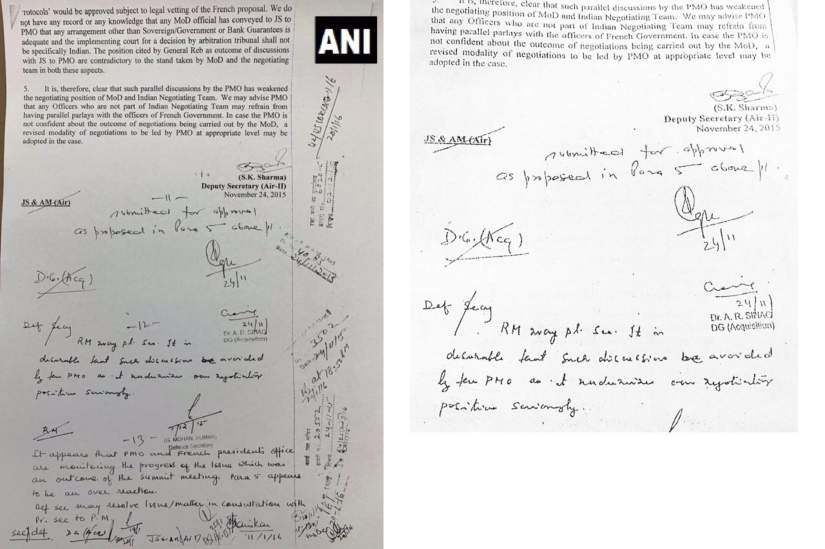 rotocols' would be approved subject to legal vetting of the French proposal. We do
not have any record or knowledge that any MoD official has conveyed to JS to
PMO that any arrangement other than Sovereign/Government or Bank Guarantees is
adequate and the implementing court for a decision by arbitration tribunal shall not
be specifically Indian. The position cited by General Reb as outcome of discussions
with JS to PMO are contradictory to the stand taken by MoD and the negotiating
team in both these aspects.
5. It is, therefore, clear that such parallel discussions by the PMO has weakened
the negotiating position of MoD and Indian Negotiating Team. We may advise PMO
that any Officers who are not part of Indian Negotiating Team may refrain from
having parallel parlays with the officers of French Government. In case the PMO is
not confident about the outcome of negotiations being carried out by the MoD, a
revised modality of negotiations to be led by PMO at appropriate level may be
adopted in the case.
(S.K. Sharma)
Deputy Secretary (Air-II)
November 24, 2015
JS & AM (Air)
-11-
submitted for approval
as proposed in Para 5 above pl.
24/11
D.G.(Acq)
24/11
Dr. A. R. SIHAG
DG (Acquisition)
Def Secy
-12-
RM may pl. see. It is
desirable that such discussions be avoided
by the PMO as it undermines our negotiating
position seriously.
G. MOHAN KUMAR
Defence Secretary
RM
-13-
It appears that PMO and French presidents office
are monitoring the progress of the issue which was
an outcome of the summit meeting. Para 5 appears
to be an over reaction.
Def sec may resolve Issue/matter in consultation with
Pr. sec to P.M
sec/def
11/1/16
ANI
5. It is, therefore, clear that such parallel discussions by the PMO has weakened
the negotiating position of MoD and Indian Negotiating Team. We may advise PMO
that any Officers who are not part of Indian Negotiating Team may refrain from
having parallel parlays with the officers of French Government. In case the PMO is
not confident about the outcome of negotiations being carried out by the MoD, a
revised modality of negotiations to be led by PMO at appropriate level may be
adopted in the case.
(S.K. Sharma)
Deputy Secretary (Air-II)
November 24, 2015
JS & AM (Air)
submitted for approval
as proposed in Para 5 above pl.
24/11
D.G.(Acq)
24/11
Dr. A. R. SIHAG
DG (Acquisition)
Def Secy
RM may pl. see. It is
desirable that such discussions be avoided
by the PMO as it undermines our negotiating
position seriously.